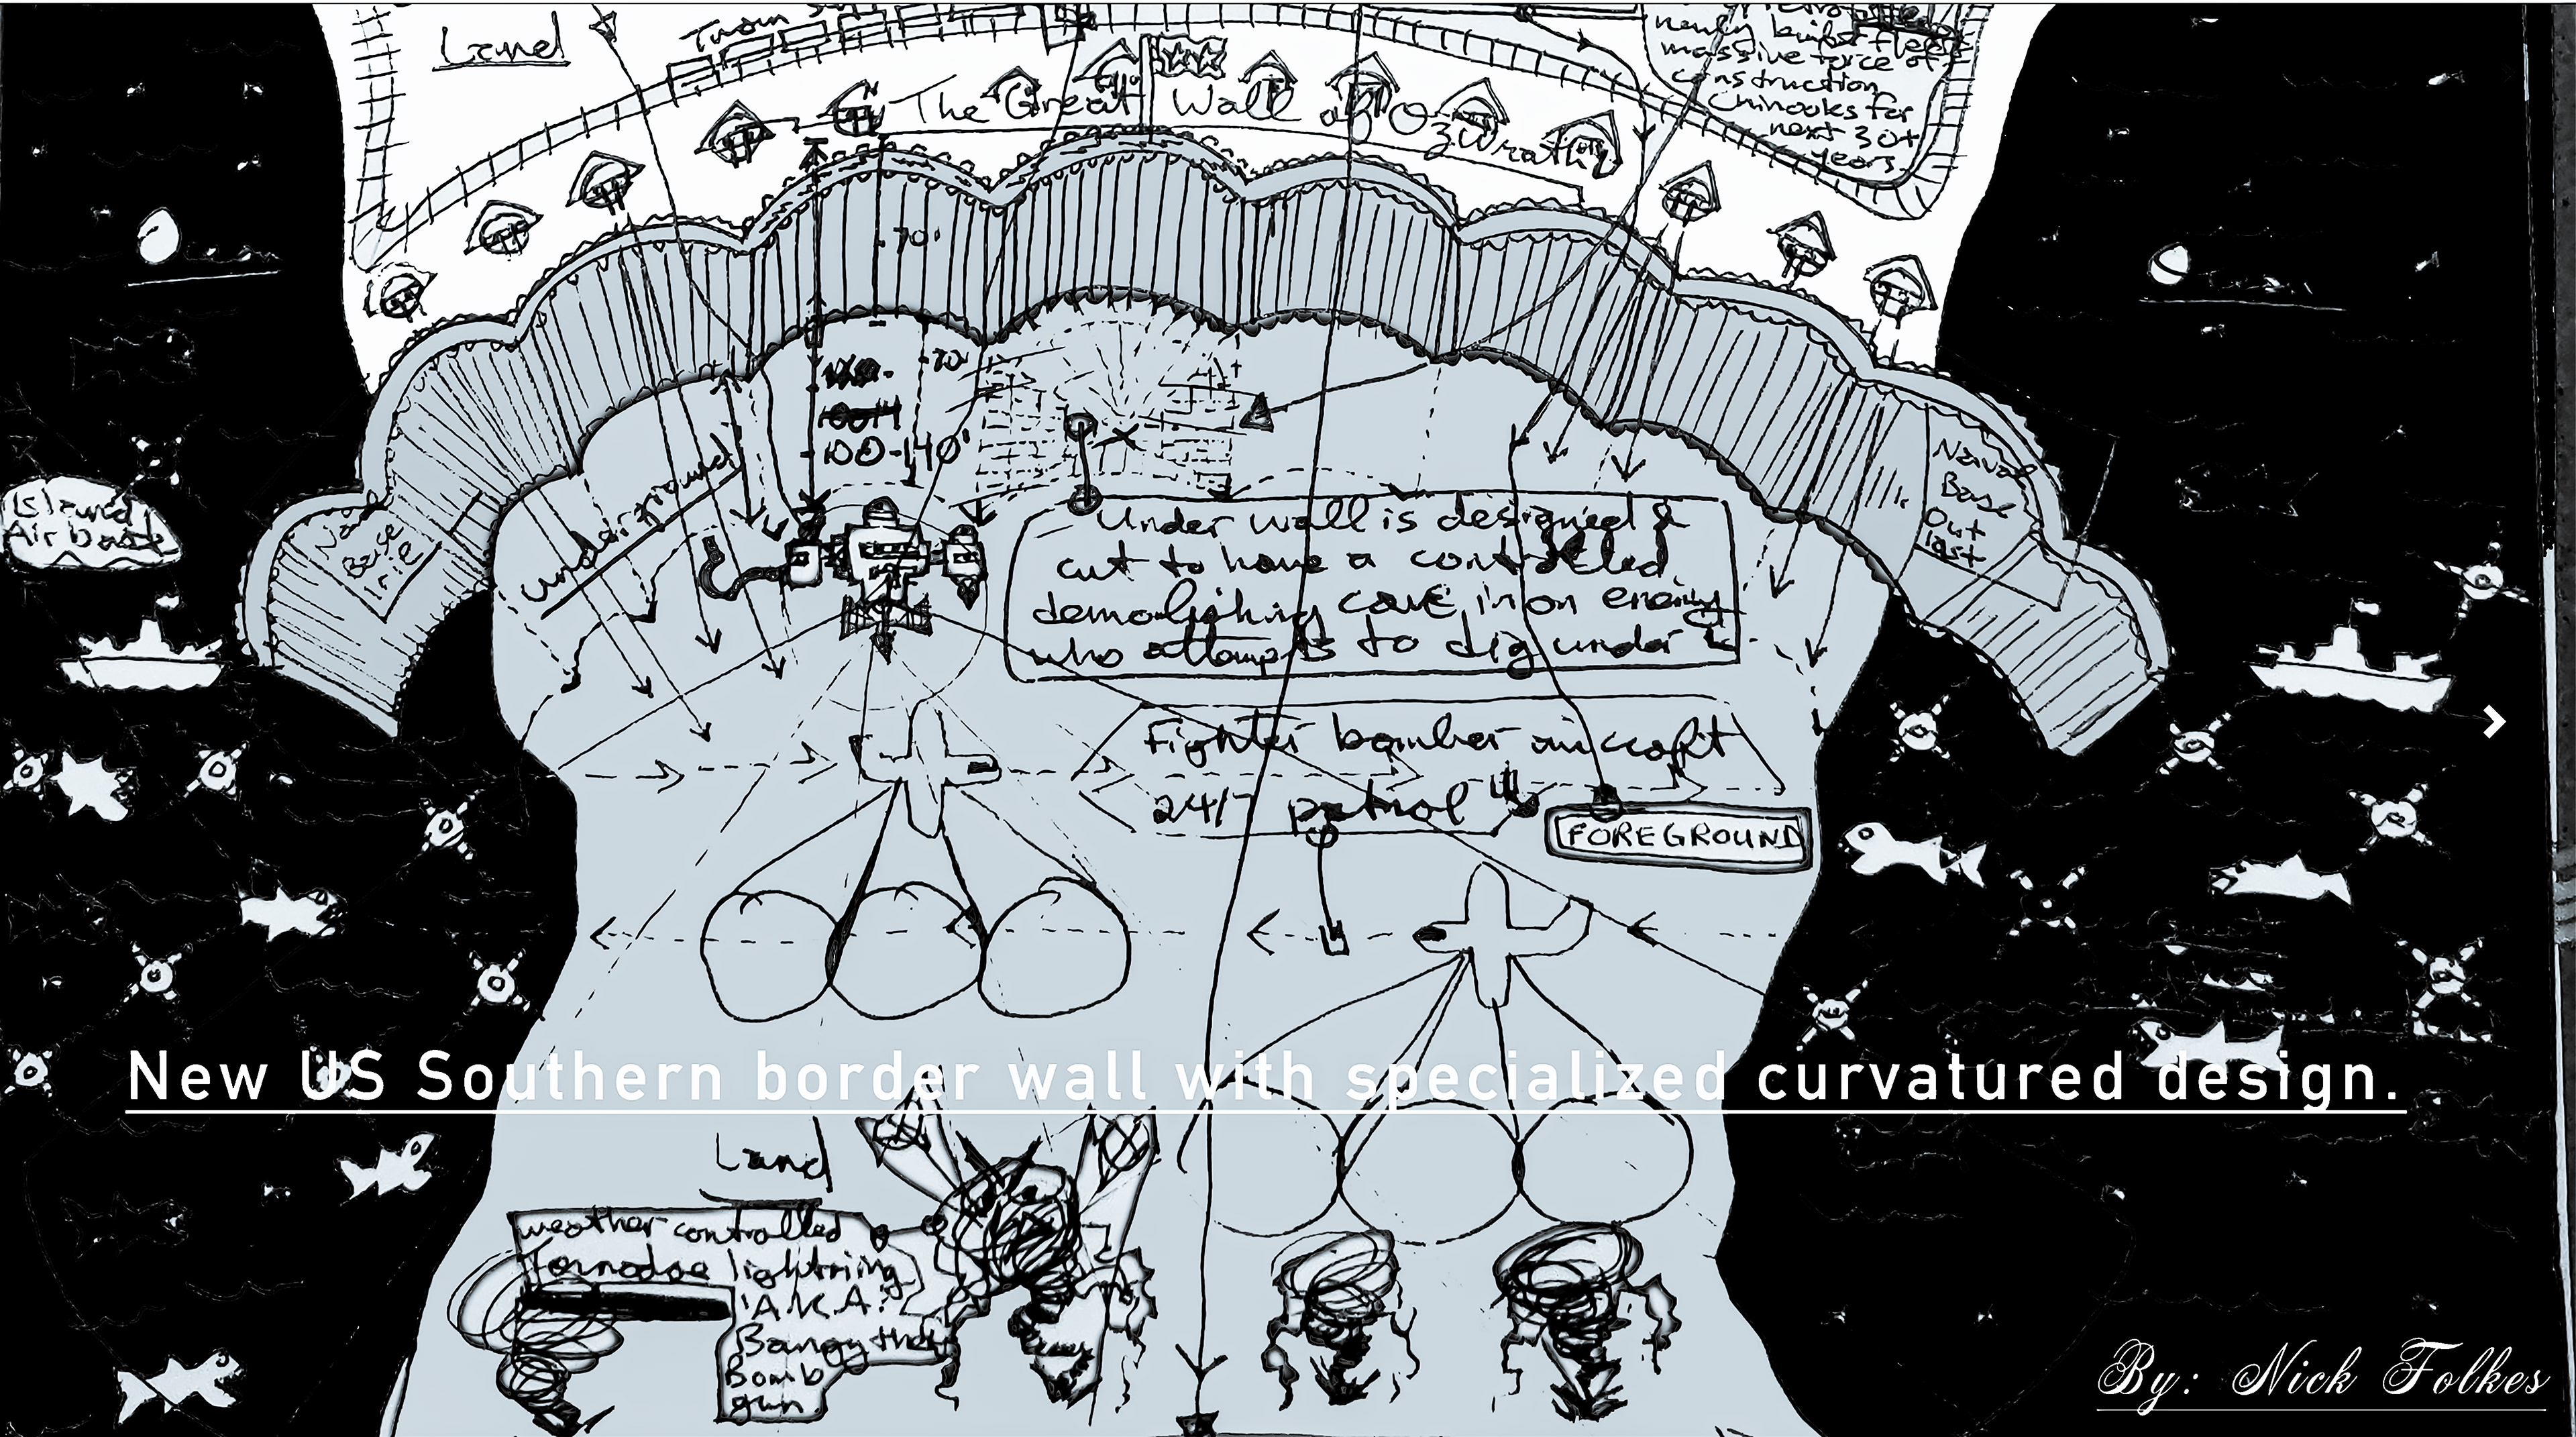 Land
Train
newly built fleet
massive force of
construction
chinooks for
next 30+
years
The Great Wall of Ozwrathy
70'
70'
100-140'
Island
Air base
Naval
Base
Naval
Base
Out
last
underground
Under wall is designed &
cut to have a controlled
demolishing cave in on enemy
who attempts to dig under it
Fighter bomber aircraft
24/7 patrol
FOREGROUND
New US Southern border wall with specialized curvatured design.
Land
weather controlled
Tornadoe lightning
"A.K.A."
Bangy the
Bomb
gun
By: Nick Folkes